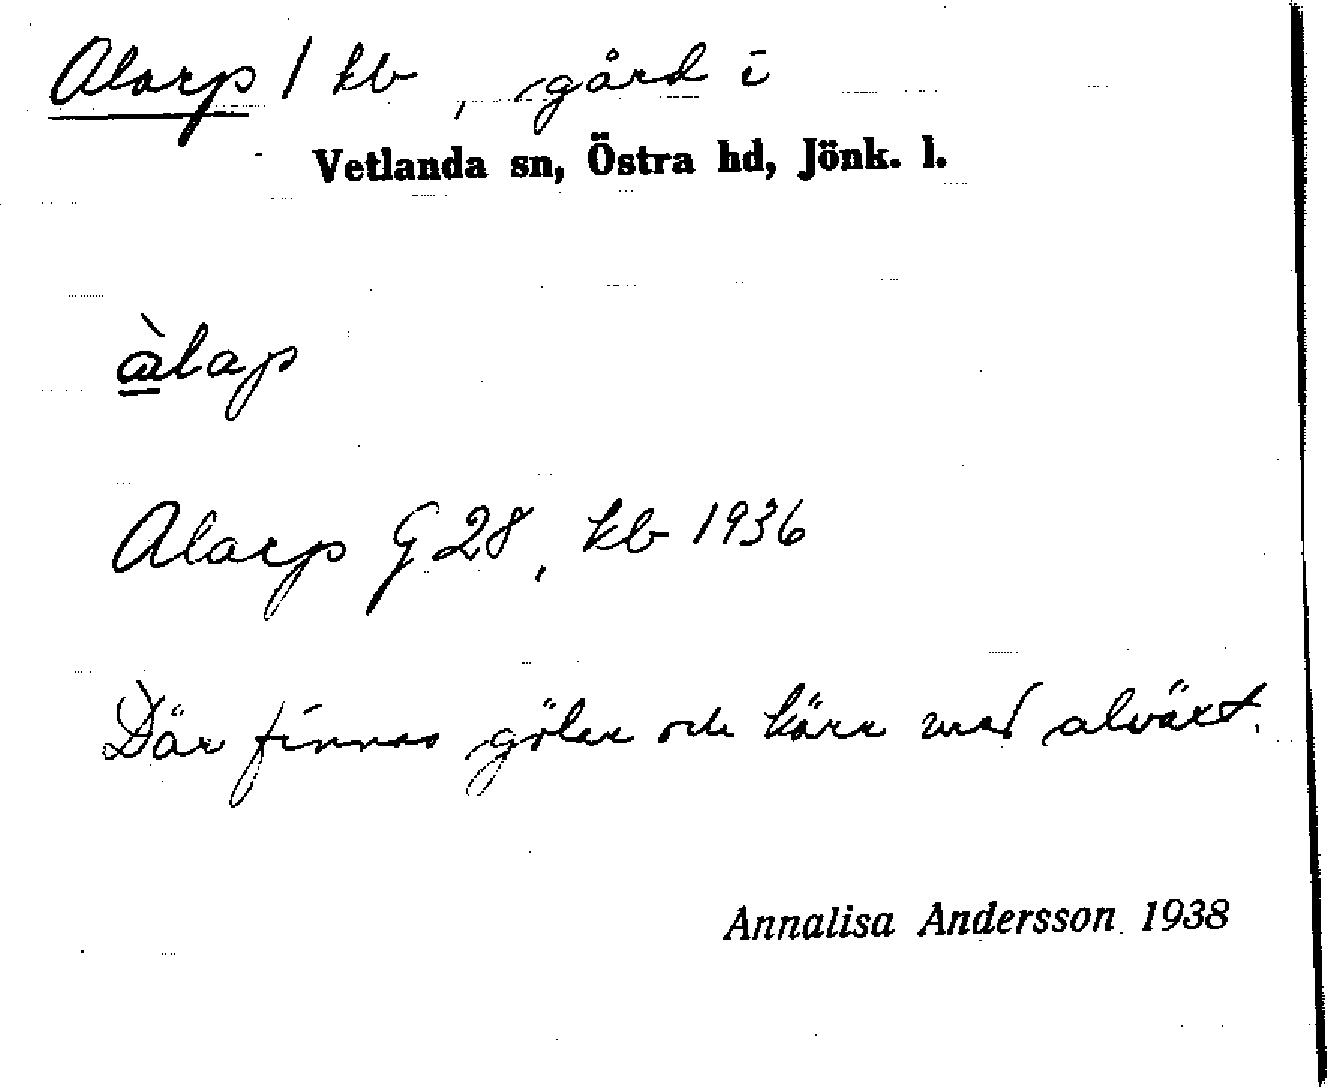 Alarp / kb, gård i
Vetlanda sn, Östra hd, Jönk. l.
àlap
Alarp G 28, kb 1936
Där finnas gölar och kärr med alväxt.
Annalisa Andersson 1938